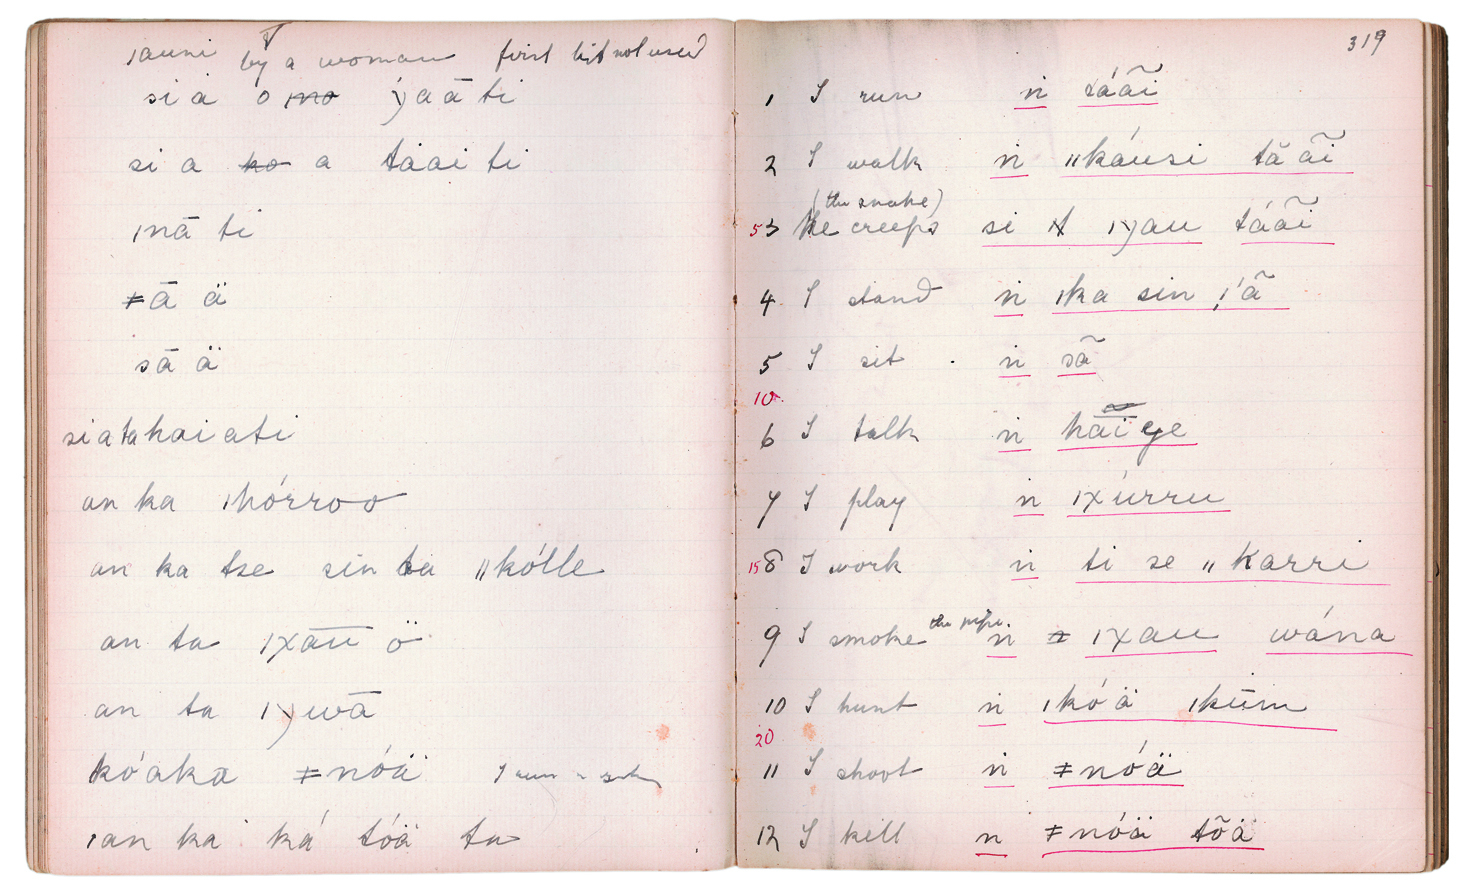 ıauni by a woman first bit not used
si a o mo yaā ti
si a ko a táai ti
ınā ti
≠ā ä
sā ä
si a ta hai ati
an ka ıhórroo
an ka tse sin ta ıı kólle
an ta ıχāu ö
an ta ı)uwā
kó aka ≠nóä I run
ıan ka ká tóä ta
319
1 I run ṅ táãi
2 I walk ṅ ııkáusi tă ãi
(the snake)
5 3 he creeps si ı)au táãi
4 I stand ṅ ıka sin ı'ã
5 I sit ṅ sã
10
6 I talk ṅ hāï ye
7 I play ṅ ıχúrru
15 8 I work ṅ ti se ıı karri
9 I smoke the pipe ṅ ıχau wána
10 I hunt ṅ ıkó'ä ıkūm
20
11 I shoot ṅ ≠nóä
12 I kill ṅ ≠nóä tõä